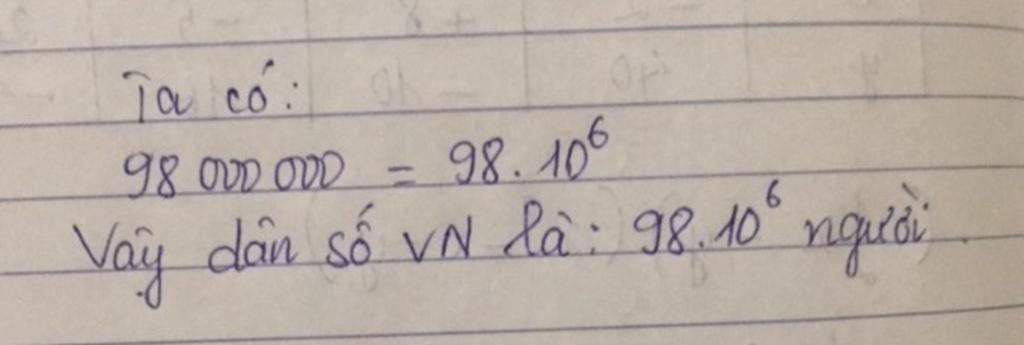 Ta có:
98 000 000 = 98. 10⁶
Vậy dân số VN là: 98.10⁶ người.